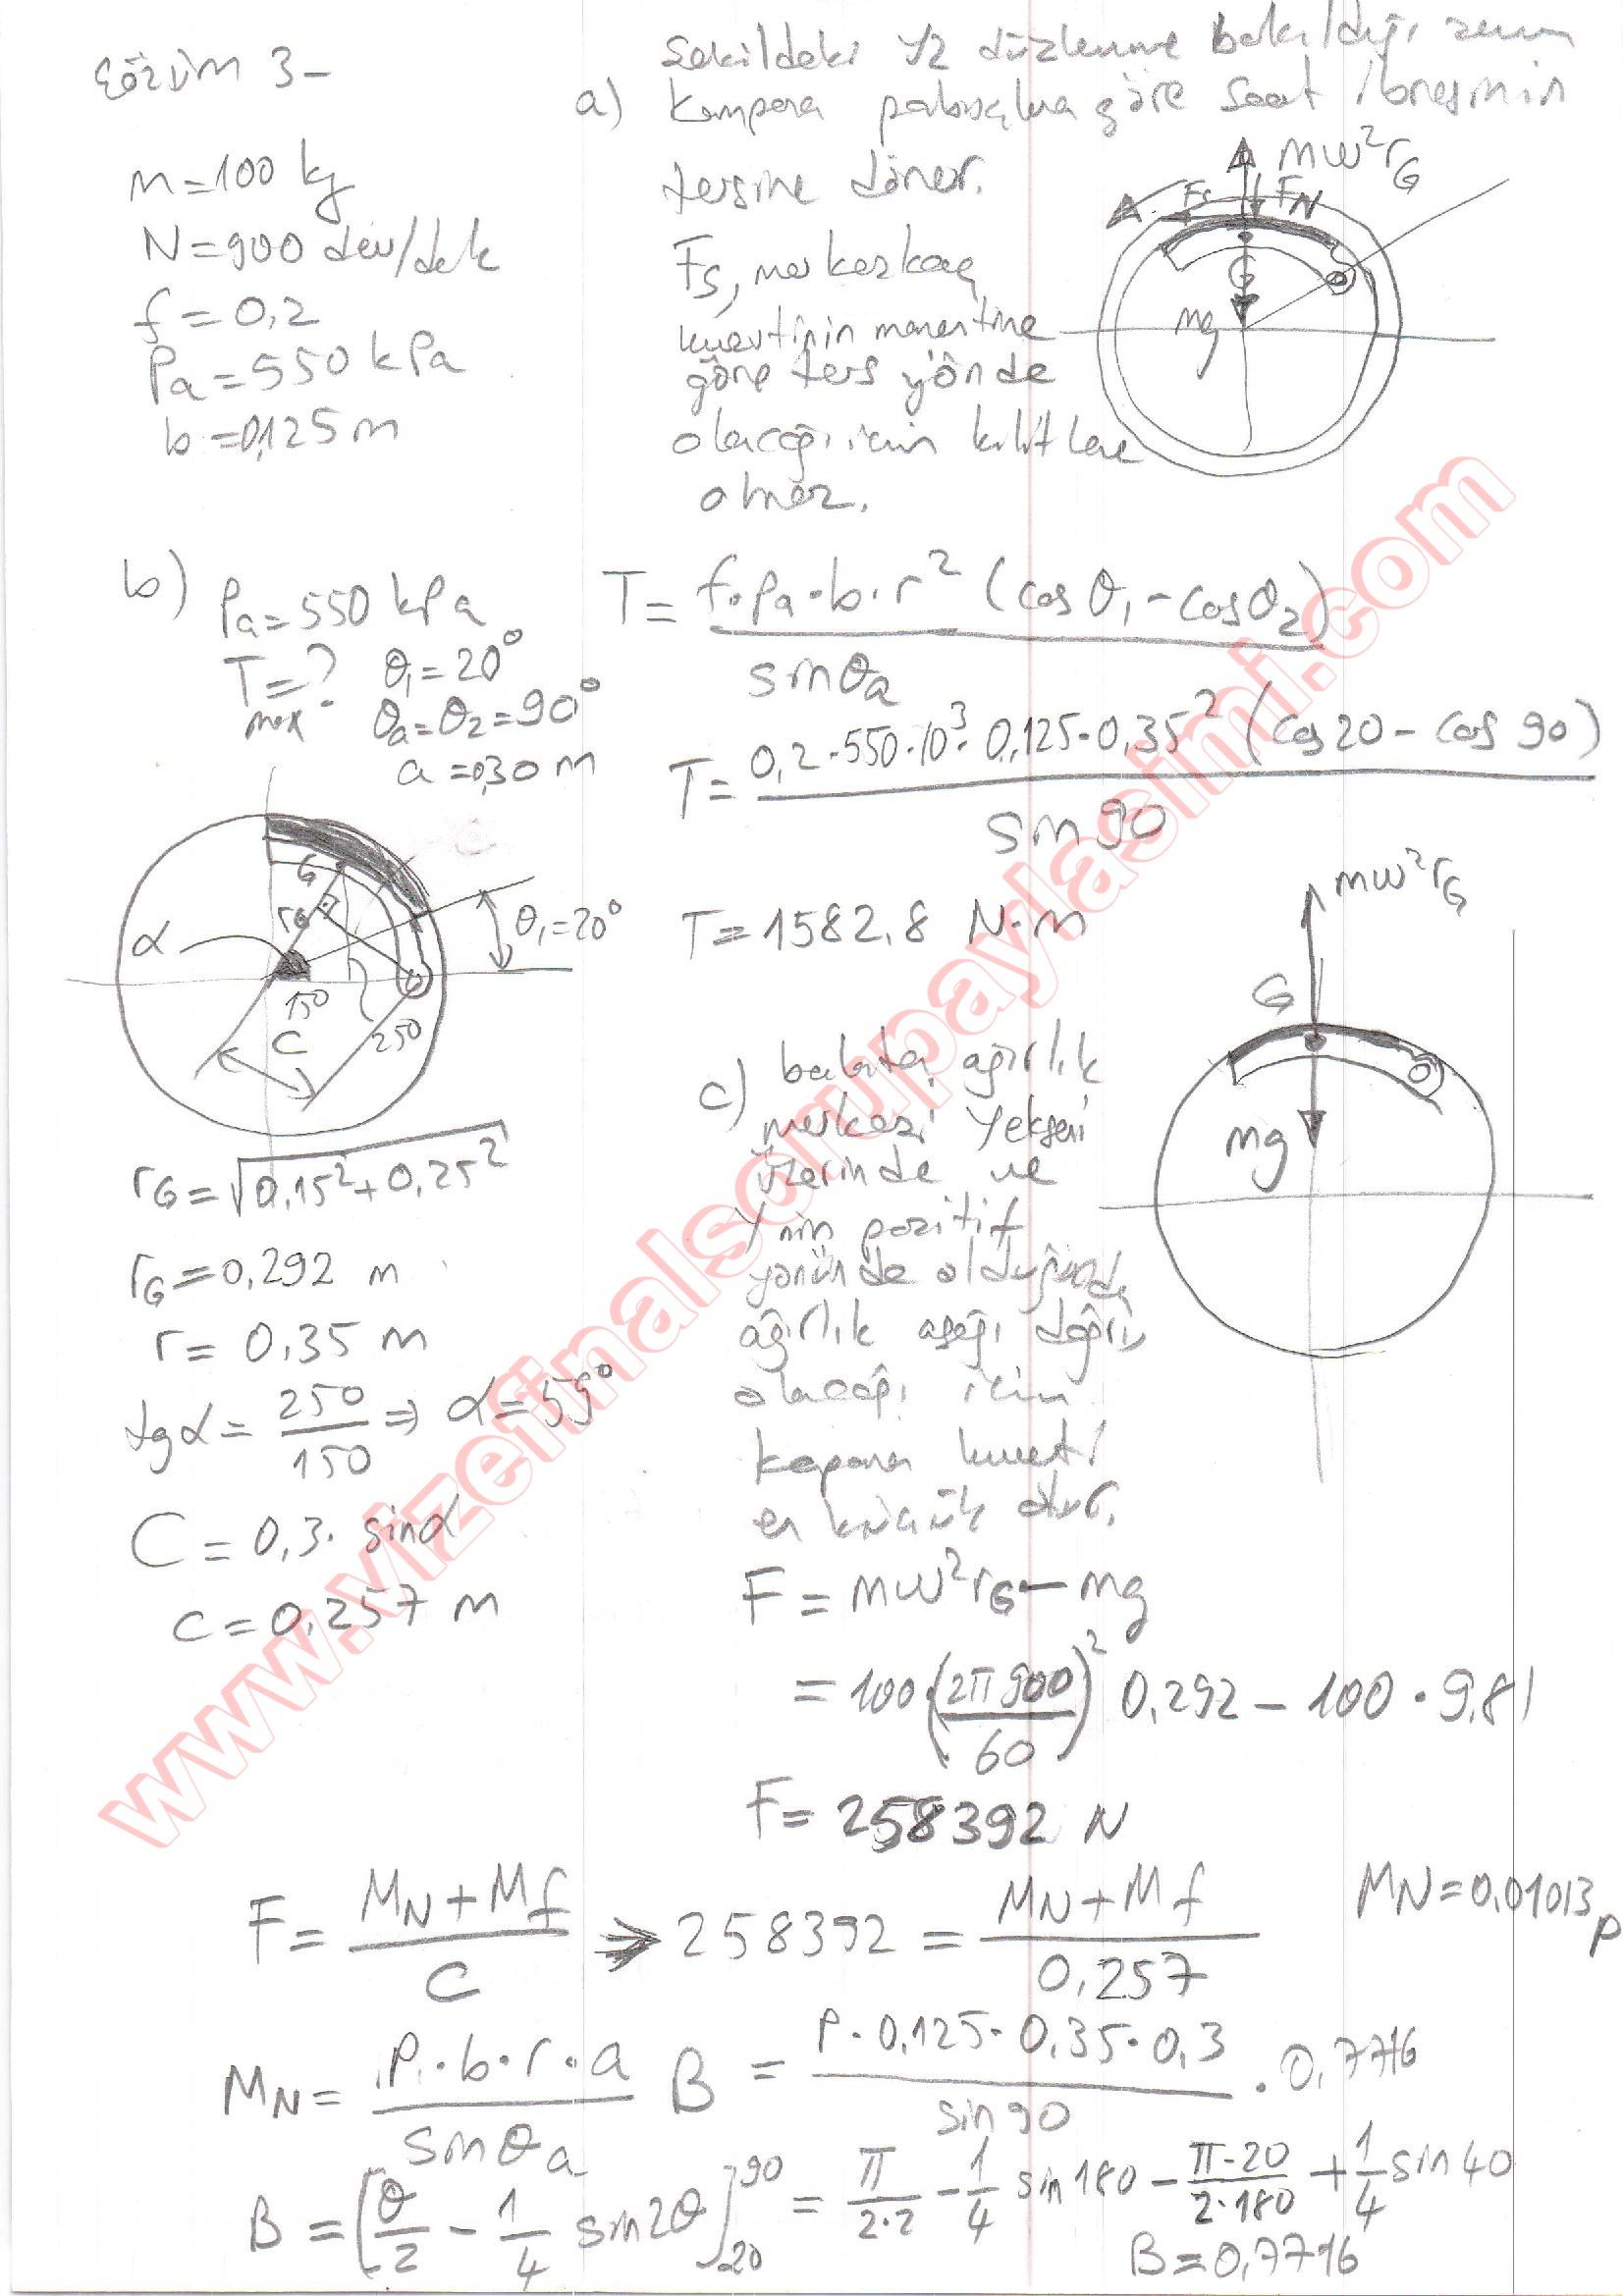 ÇÖZÜM 3-
m=100 kg
N=900 dev/dek
f=0,2
Pa=550 kPa
b=0,125 m
Şekildeki yz düzlemine bakıldığı zaman
a) Kampana pabuçlara göre saat ibresinin
tersine döner.
Fs, merkezkaç
kuvvetinin momentine
göre ters yönde
olacağı için kilitleme
olmaz.
mω²rG
Fs
FN
G
mg
b) Pa=550 kPa
T=?
max
θ₁=20°
θa=θ₂=90°
a=0,30 m
T= f·Pa·b·r² (cosθ₁-cosθ₂)
sinθa
T= 0,2·550·10³·0,125·0,35² (cos20-cos90)
sin90
T=1582,8 N·m
G
rG
α
θ₁=20°
150
C
250
rG=√0,15²+0,25²
rG=0,292 m
r=0,35 m
tgα= 250
150
⇒ α=59°
C=0,3·sinα
c=0,257 m
c) balata ağırlık
merkezi Y ekseni
üzerinde ve
Y nin pozitif
yönünde olduğunda
ağırlık aşağı doğru
olacağı için
kapama kuvveti
en küçük olur.
mω²rG
G
mg
F=mω²rG-mg
=100·(2π900
60
)² 0,292-100·9,81
F=258392 N
F= MN+Mf
C
⇒ 258392 = MN+Mf
0,257
MN=0,01013p
MN= P·b·r·a
sinθa
B = P·0,125·0,35·0,3
sin90
·0,7716
B=[θ/2 - 1/4 sin2θ]⁹⁰₂₀ = π/2·2 - 1/4 sin180 - π·20/2·180 + 1/4 sin40
B=0,7716
www.vizefinalsorupaylasimi.com